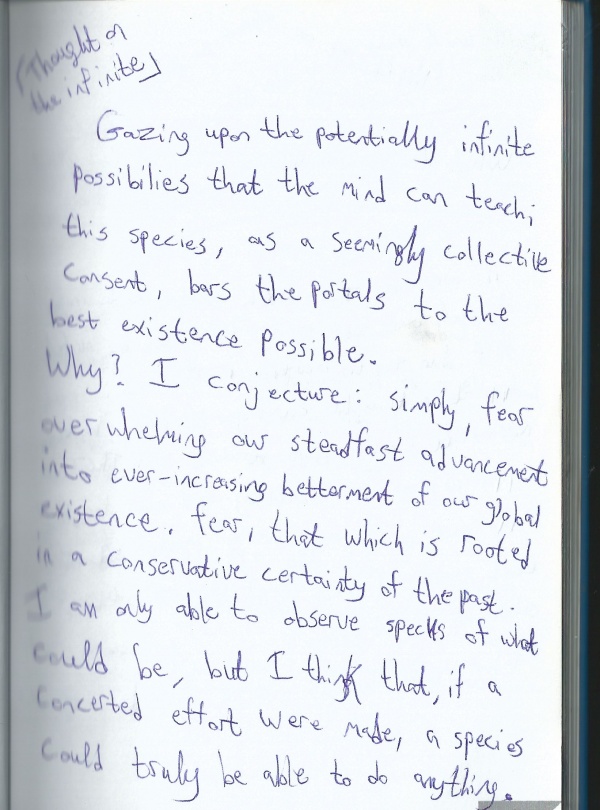 [Thought on
the infinite]
Gazing upon the potentially infinite
possibilies that the mind can teach;
this species, as a seemingly collective
consent, bars the portals to the
best existence possible.
Why? I conjecture: simply, fear
overwhelming our steadfast advancement
into ever-increasing betterment of our global
existence. Fear, that which is rooted
in a conservative certainty of the past.
I am only able to observe specks of what
could be, but I think that, if a
concerted effort were made, a species
could truly be able to do anything.